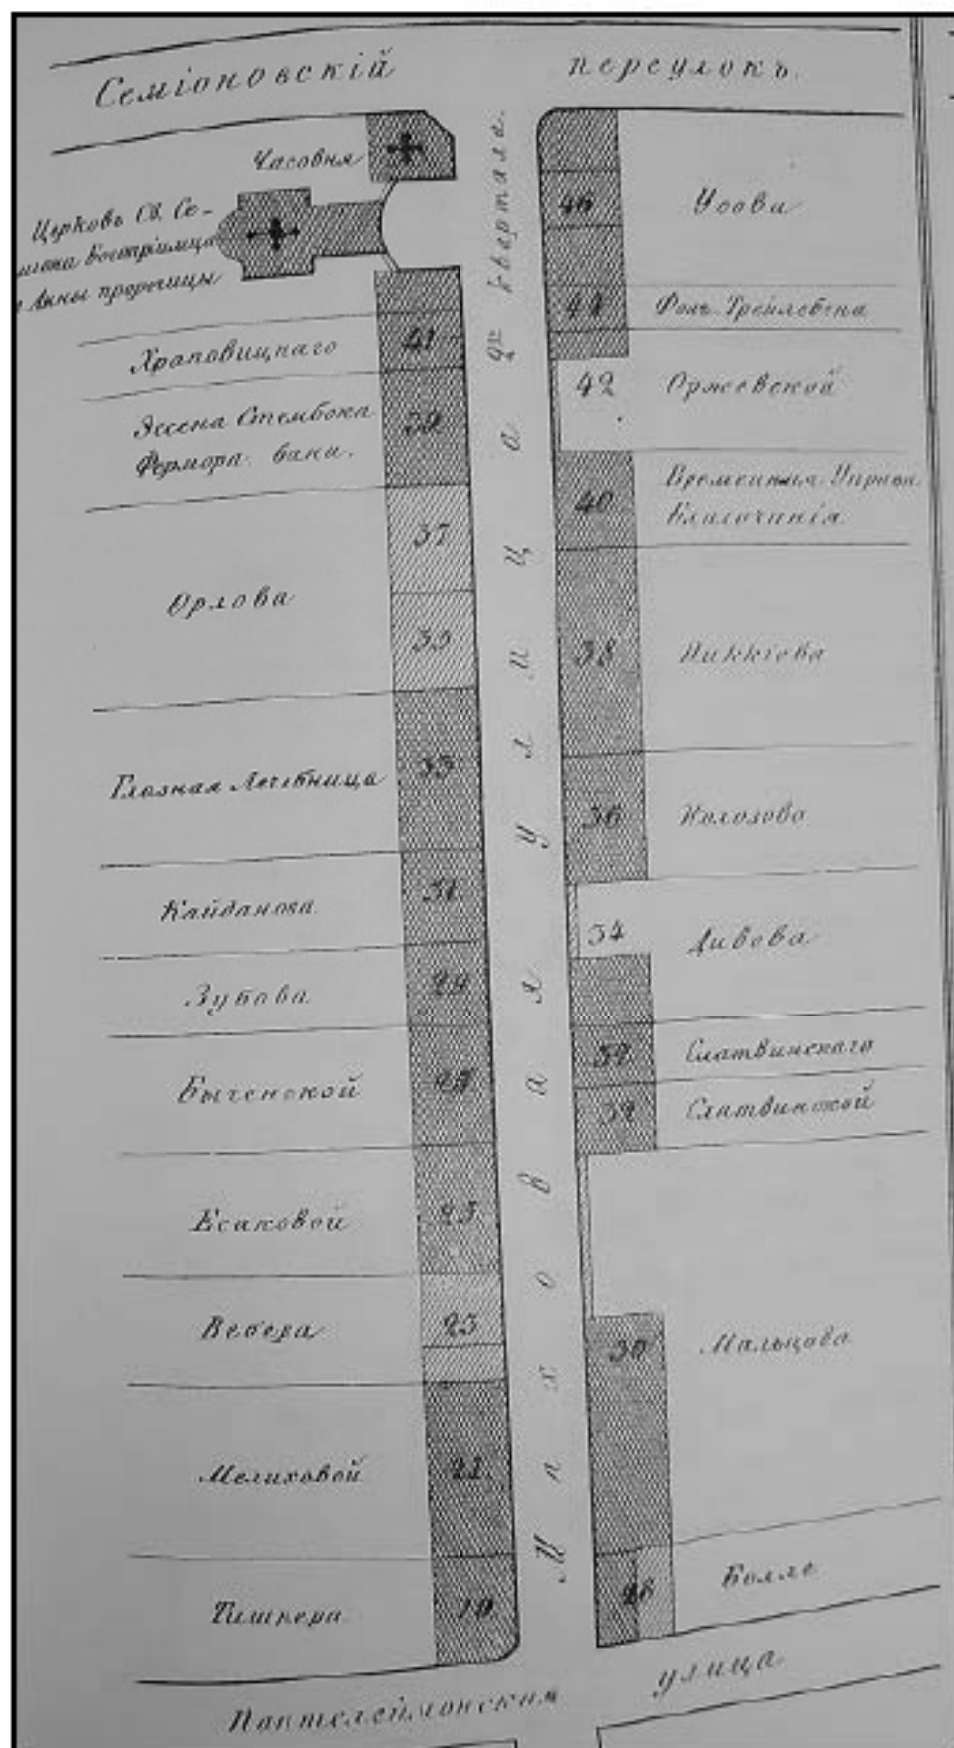 Семіоновскій переулокъ.
Часовня
Церковь Св. Се-
Анны пророчицы
41
Храповицкаго
39
Эссена Стембока
Фермора
37
35
Орлова
33
Глазная Лечебница
31
Кайданова
29
Зубова
27
Быченской
25
Есаковой
23
Вебера
21
Мелиховой
19
Тишнера
Моховая улица
квартала.
46
Усова
44
42
Оржевской
40
Временная Управа
Благочинія
38
36
34
Дивова
32
Слатвинскаго
32
Слатвинской
30
Мальцова
28
Болле
Пантелеймонская улица